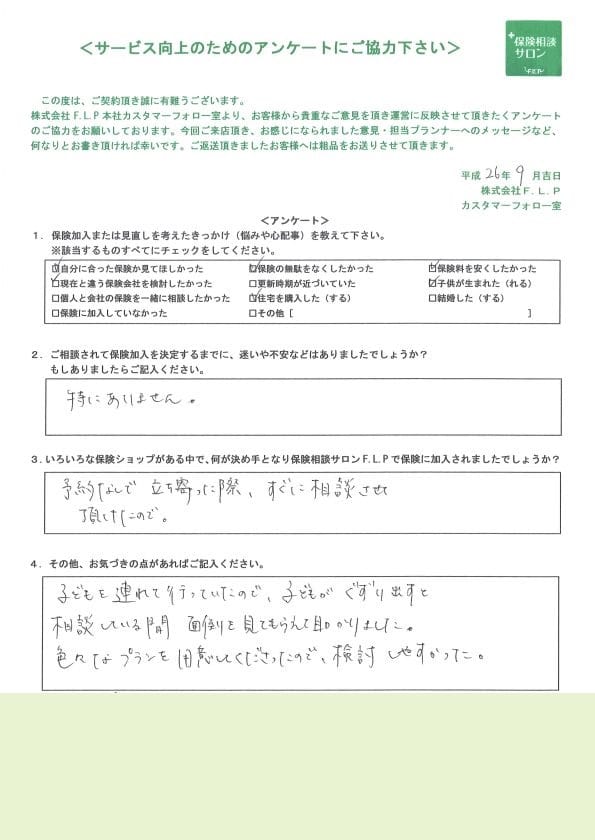 ＜サービス向上のためのアンケートにご協力下さい＞
保険相談
サロン
F.L.P
この度は、ご契約頂き誠に有難うございます。
株式会社Ｆ.Ｌ.Ｐ本社カスタマーフォロー室より、お客様から貴重なご意見を頂き運営に反映させて頂きたくアンケート
のご協力をお願いしております。今回ご来店頂き、お感じになられました意見・担当プランナーへのメッセージなど、
何なりとお書き頂ければ幸いです。ご返送頂きましたお客様へは粗品をお送りさせて頂きます。
平成 26年 9 月吉日
株式会社Ｆ.Ｌ.Ｐ
カスタマーフォロー室
＜アンケート＞
１．保険加入または見直しを考えたきっかけ（悩みや心配事）を教えて下さい。
※該当するものすべてにチェックをしてください。
☑自分に合った保険か見てほしかった ☑保険の無駄をなくしたかった ☑保険料を安くしたかった
☑現在と違う保険会社を検討したかった □更新時期が近づいていた ☑子供が生まれた（れる）
□個人と会社の保険を一緒に相談したかった ☑住宅を購入した（する） □結婚した（する）
□保険に加入していなかった □その他［ ］
２．ご相談されて保険加入を決定するまでに、迷いや不安などはありましたでしょうか？
もしありましたらご記入ください。
特にありません。
３.いろいろな保険ショップがある中で、何が決め手となり保険相談サロンＦ.Ｌ.Ｐで保険に加入されましたでしょうか？
予約なしで 立ち寄った際、すぐに相談させ
頂けたので。
４．その他、お気づきの点があればご記入ください。
子どもを連れて行っていたので、子どもが ぐずり出すと
相談している間 面倒を見てもらえて助かりました。
色々なプランを用意してくださったので、検討 しやすかった。